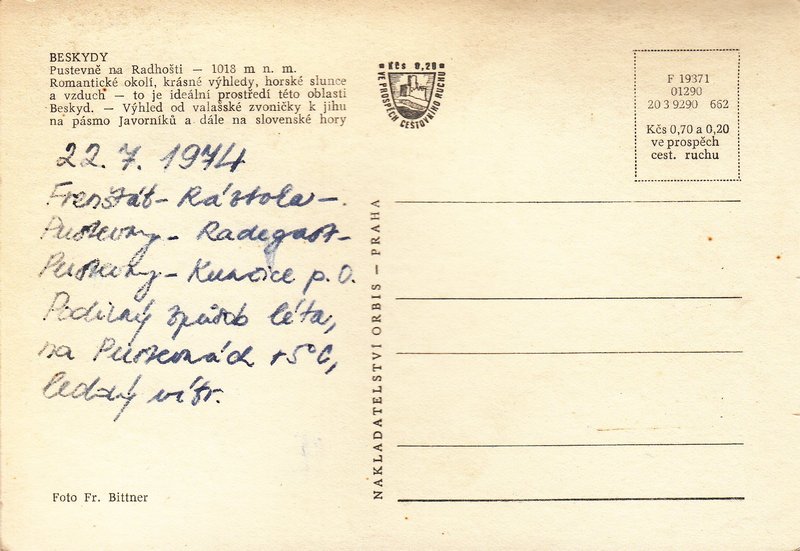 BESKYDY
Pustevně na Radhošti — 1018 m n. m.
Romantické okolí, krásné výhledy, horské slunce
a vzduch — to je ideální prostředí této oblasti
Beskyd. — Výhled od valašské zvoničky k jihu
na pásmo Javorníků a dále na slovenské hory
Kčs 0,20
VE PROSPĚCH CESTOVNÍHO RUCHU
F 19371
01290
20 3 9290 662
Kčs 0,70 a 0,20
ve prospěch
cest. ruchu
22. 7. 1974
Frenštát - Ráztoka -
Pustevny - Radegast -
Pustevny - Kunčice p. O.
Podivný způsob léta,
na Pustevnách +5°C,
ledový vítr.
NAKLADATELSTVÍ ORBIS — PRAHA
Foto Fr. Bittner